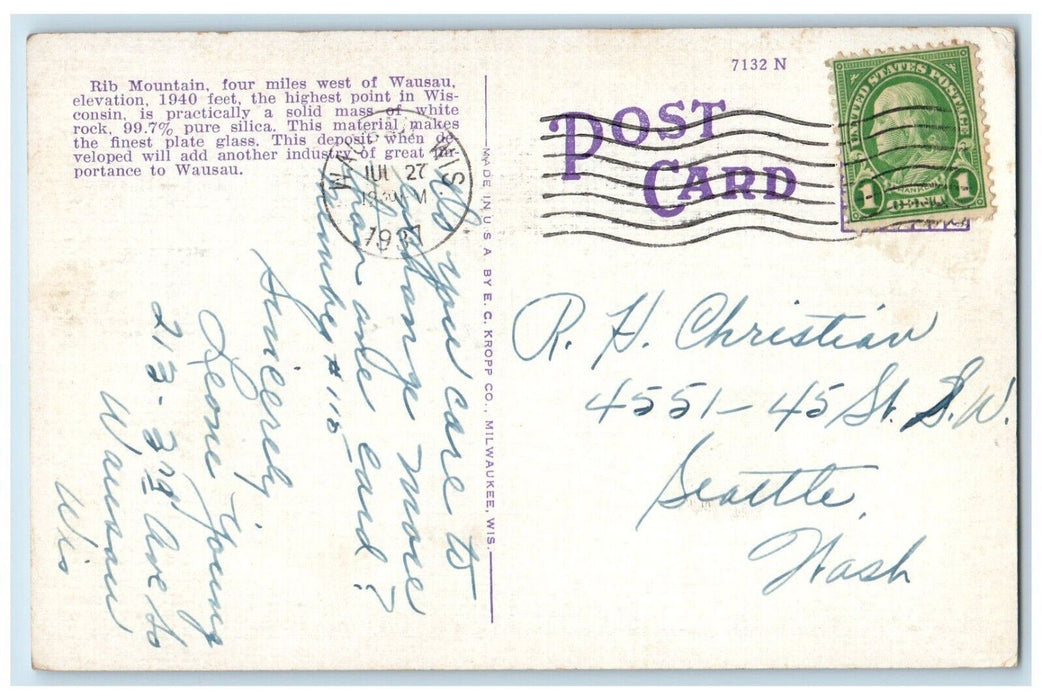 Rib Mountain, four miles west of Wausau,
elevation, 1940 feet, the highest point in Wis-
consin, is practically a solid mass of white
rock, 99.7% pure silica. This material makes
the finest plate glass. This deposit when de-
veloped will add another industry of great im-
portance to Wausau.
7132 N
POST
CARD
UNITED STATES POSTAGE
FRANKLIN
1 CENT 1
WAUSAU WIS.
JUL 27
1937
MADE IN U.S.A. BY E. C. KROPP CO., MILWAUKEE, WIS.
Do you care to
exchange more
than one card?
number #115
Sincerely,
Leone Young
213-3rd Ave So
Wausau
Wis
R. H. Christian
4551-45 St. S.W.
Seattle,
Wash